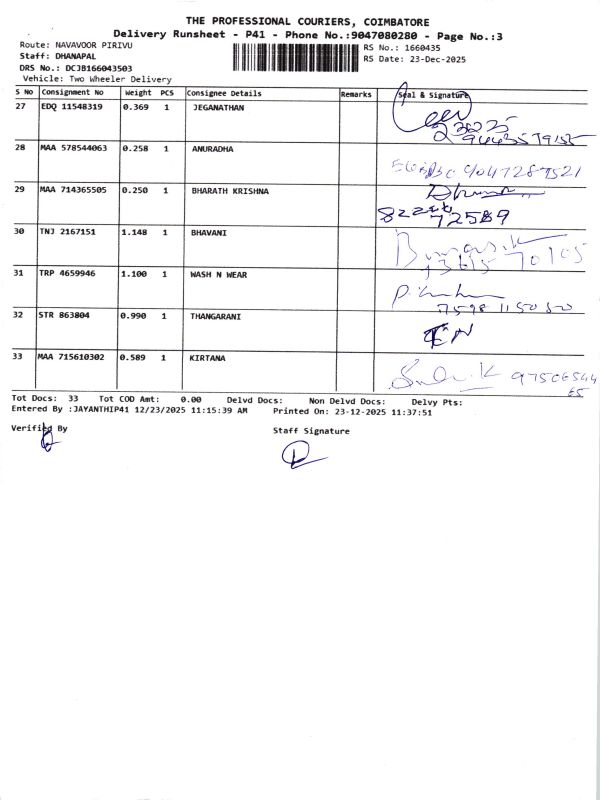 THE PROFESSIONAL COURIERS, COIMBATORE
Delivery Runsheet - P41 - Phone No.:9047080280 - Page No.:3
Route: NAVAVOOR PIRIVU
RS No.: 1660435
Staff: DHANAPAL
RS Date: 23-Dec-2025
DRS No.: DCJB166043503
Vehicle: Two Wheeler Delivery
S No Consignment No Weight PCS Consignee Details Remarks Seal & Signature
27 EDQ 11548319 0.369 1 JEGANATHAN
28 MAA 578544063 0.258 1 ANURADHA
29 MAA 714365505 0.250 1 BHARATH KRISHNA
72589
30 TNJ 2167151 1.148 1 BHAVANI
31 TRP 4659946 1.100 1 WASH N WEAR
32 STR 863804 0.990 1 THANGARANI
33 MAA 715610302 0.589 1 KIRTANA
Tot Docs: 33 Tot COD Amt: 0.00 Delvd Docs: Non Delvd Docs: Delvy Pts:
Entered By :JAYANTHIP41 12/23/2025 11:15:39 AM Printed On: 23-12-2025 11:37:51
Verified By
Staff Signature